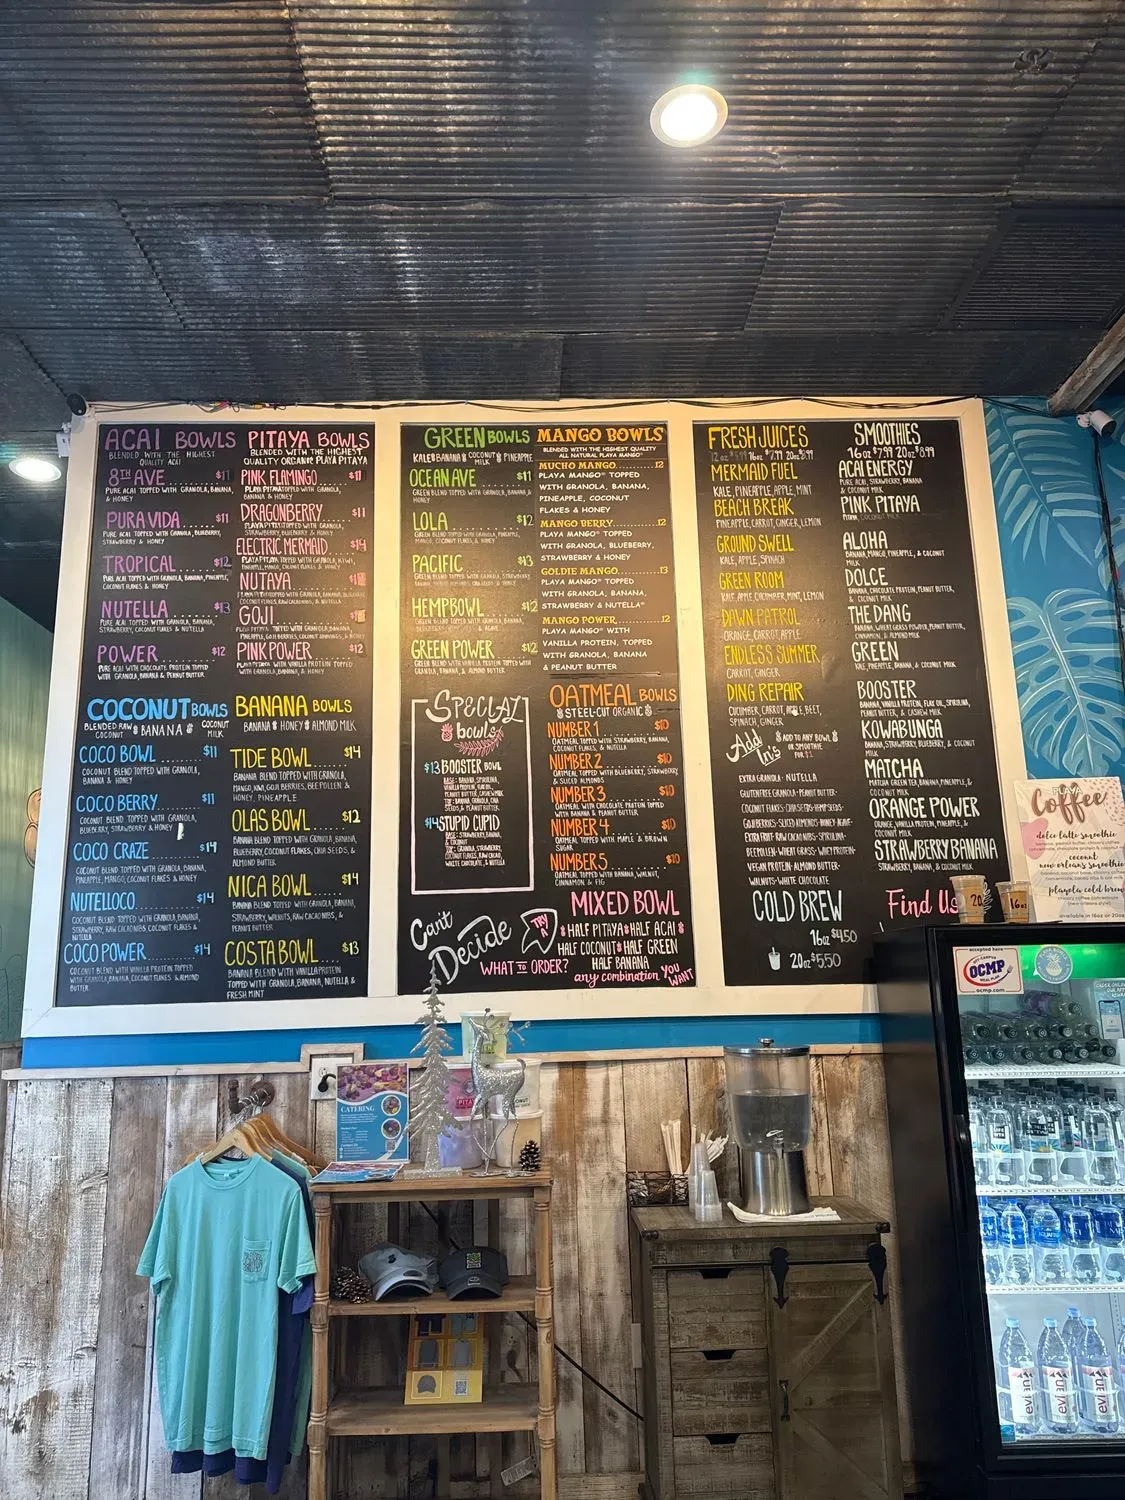 ACAI BOWLS
BLENDED WITH THE HIGHEST
QUALITY ACAI
8TH AVE $11
PURE ACAI TOPPED WITH GRANOLA, BANANA,
& HONEY
PURA VIDA $11
PURE ACAI TOPPED WITH GRANOLA, BLUEBERRY,
STRAWBERRY & HONEY
TROPICAL $12
PURE ACAI TOPPED WITH GRANOLA, BANANA, PINEAPPLE,
COCONUT FLAKES & HONEY
NUTELLA $13
PURE ACAI TOPPED WITH GRANOLA, BANANA,
STRAWBERRY, COCONUT FLAKES & NUTELLA
POWER $12
PURE ACAI WITH CHOCOLATE PROTEIN TOPPED
WITH GRANOLA, BANANA & PEANUT BUTTER
PITAYA BOWLS
BLENDED WITH THE HIGHEST
QUALITY ORGANIC PLAYA PITAYA
PINK FLAMINGO $11
PLAYA PITAYA TOPPED WITH GRANOLA,
BANANA & HONEY
DRAGONBERRY $11
PLAYA PITAYA TOPPED WITH GRANOLA,
STRAWBERRY, BLUEBERRY & HONEY
ELECTRIC MERMAID $14
PLAYA PITAYA TOPPED WITH GRANOLA, KIWI,
PINEAPPLE, MANGO, COCONUT FLAKES & HONEY
NUTAYA
GOJI
PINK POWER $12
PLAYA PITAYA WITH VANILLA PROTEIN TOPPED
WITH GRANOLA, BANANA & PEANUT BUTTER
COCONUT BOWLS
BLENDED RAW COCONUT BANANA COCONUT MILK
COCO BOWL $11
COCONUT BLEND TOPPED WITH GRANOLA,
BANANA & HONEY
COCO BERRY $11
COCONUT BLEND TOPPED WITH GRANOLA,
BLUEBERRY, STRAWBERRY & HONEY
COCO CRAZE $14
COCONUT BLEND TOPPED WITH GRANOLA, BANANA,
PINEAPPLE, MANGO, COCONUT FLAKES & HONEY
NUTELLOCO $14
COCONUT BLEND TOPPED WITH GRANOLA, BANANA,
STRAWBERRY, RAW CACAO NIBS COCONUT FLAKES &
NUTELLA
COCO POWER $14
COCONUT BLEND WITH VANILLA PROTEIN TOPPED
WITH GRANOLA, BANANA, COCONUT FLAKES & ALMOND
BUTTER
BANANA BOWLS
BANANA HONEY ALMOND MILK
TIDE BOWL $14
BANANA BLEND TOPPED WITH GRANOLA,
MANGO, KIWI, GOJI BERRIES, BEE POLLEN &
HONEY, PINEAPPLE
OLAS BOWL $12
BANANA BLEND TOPPED WITH GRANOLA, BANANA,
BLUEBERRY, COCONUT FLAKES, CHIA SEEDS, &
ALMOND BUTTER
NICA BOWL $14
BANANA BLEND TOPPED WITH GRANOLA, BANANA,
STRAWBERRY, WALNUTS, RAW CACAO NIBS, &
PEANUT BUTTER
COSTA BOWL $13
BANANA BLEND WITH VANILLA PROTEIN
TOPPED WITH GRANOLA, BANANA, NUTELLA &
FRESH MINT
GREEN BOWLS
KALE BANANA COCONUT MILK PINEAPPLE
OCEAN AVE $11
GREEN BLEND TOPPED WITH GRANOLA,
BANANA & HONEY
LOLA $12
PACIFIC $13
HEMP BOWL $12
GREEN POWER $12
GREEN BLEND WITH VANILLA PROTEIN TOPPED WITH
GRANOLA, BANANA, & ALMOND BUTTER
MANGO BOWLS
BLENDED WITH THE HIGHEST QUALITY
ALL NATURAL PLAYA MANGO
MUCHO MANGO 12
PLAYA MANGO TOPPED
WITH GRANOLA, BANANA,
PINEAPPLE, COCONUT
FLAKES & HONEY
MANGO BERRY 12
PLAYA MANGO TOPPED
WITH GRANOLA, BLUEBERRY,
STRAWBERRY & HONEY
GOLDIE MANGO 13
PLAYA MANGO TOPPED
WITH GRANOLA, BANANA,
STRAWBERRY & NUTELLA
MANGO POWER 12
PLAYA MANGO WITH
VANILLA PROTEIN, TOPPED
WITH GRANOLA, BANANA
& PEANUT BUTTER
SPECIAL
bowls
$13 BOOSTER BOWL
BASE: BANANA, SPIRULINA,
VANILLA PROTEIN, FLAX OIL,
PEANUT BUTTER, CASHEW MILK
TOP: BANANA, GRANOLA, CHIA
SEEDS, & PEANUT BUTTER
$14 STUPID CUPID
BASE: STRAWBERRY, BANANA,
& COCONUT
MILK
TOP: GRANOLA, STRAWBERRY,
COCONUT FLAKES, RAW CACAO,
WHITE CHOCOLATE, & NUTELLA
OATMEAL BOWLS
STEEL-CUT ORGANIC
NUMBER 1 $10
OATMEAL TOPPED WITH STRAWBERRY, BANANA,
COCONUT FLAKES, & NUTELLA
NUMBER 2 $10
OATMEAL TOPPED WITH BLUEBERRY, STRAWBERRY
& SLICED ALMONDS
NUMBER 3 $10
OATMEAL WITH CHOCOLATE PROTEIN TOPPED
WITH BANANA & PEANUT BUTTER
NUMBER 4 $10
OATMEAL TOPPED WITH MAPLE & BROWN
SUGAR
NUMBER 5 $10
OATMEAL TOPPED WITH BANANA, WALNUT,
CINNAMON & FIG
Can't
Decide
WHAT TO ORDER?
TRY A
MIXED BOWL
HALF PITAYA HALF ACAI
HALF COCONUT HALF GREEN
HALF BANANA
any combination YOU WANT
FRESH JUICES
16oz $7.99 20oz $8.99
MERMAID FUEL
KALE, PINEAPPLE, APPLE, MINT
BEACH BREAK
PINEAPPLE, CARROT, GINGER, LEMON
GROUND SWELL
KALE, APPLE, SPINACH
GREEN ROOM
KALE, APPLE, CUCUMBER, MINT, LEMON
DAWN PATROL
ORANGE, CARROT, APPLE
ENDLESS SUMMER
CARROT, GINGER
DING REPAIR
CUCUMBER, CARROT, APPLE, BEET,
SPINACH, GINGER
Add
In's
ADD TO ANY BOWL
OR SMOOTHIE
FOR $1
EXTRA GRANOLA · NUTELLA
GLUTEN FREE GRANOLA · PEANUT BUTTER ·
COCONUT FLAKES · CHIA SEEDS · HEMP SEEDS ·
GOJI BERRIES · SLICED ALMONDS · HONEY · AGAVE ·
EXTRA FRUIT · RAW CACAO NIBS · SPIRULINA ·
BEE POLLEN · WHEAT GRASS · WHEY PROTEIN ·
VEGAN PROTEIN · ALMOND BUTTER ·
WALNUTS · WHITE CHOCOLATE
COLD BREW
16oz $4.50
20oz $5.50
SMOOTHIES
16oz $7.99 20oz $8.99
ACAI ENERGY
PURE ACAI, STRAWBERRY, BANANA,
& COCONUT MILK
PINK PITAYA
ALOHA
BANANA, MANGO, PINEAPPLE, & COCONUT
MILK
DOLCE
BANANA, CHOCOLATE PROTEIN, PEANUT BUTTER,
& COCONUT MILK
THE DANG
BANANA, WHEAT GRASS POWDER, PEANUT BUTTER,
CINNAMON, & ALMOND MILK
GREEN
KALE, PINEAPPLE, BANANA, & COCONUT MILK
BOOSTER
BANANA, VANILLA PROTEIN, FLAX OIL, SPIRULINA,
PEANUT BUTTER, & CASHEW MILK
KOWABUNGA
BANANA, STRAWBERRY, BLUEBERRY, & COCONUT
MILK
MATCHA
MATCHA GREEN TEA, BANANA, PINEAPPLE, &
COCONUT MILK
ORANGE POWER
ORANGE, VANILLA PROTEIN, PINEAPPLE, &
COCONUT MILK
STRAWBERRY BANANA
STRAWBERRY, BANANA, & COCONUT MILK
Find Us
PLAYA
Coffee
dolce latte smoothie
coconut
new orleans smoothie
playola cold brew
available in 16oz or 20oz
20
16oz
accepted here
OCMP
ocmp.com
CATERING
evian
evian
evian